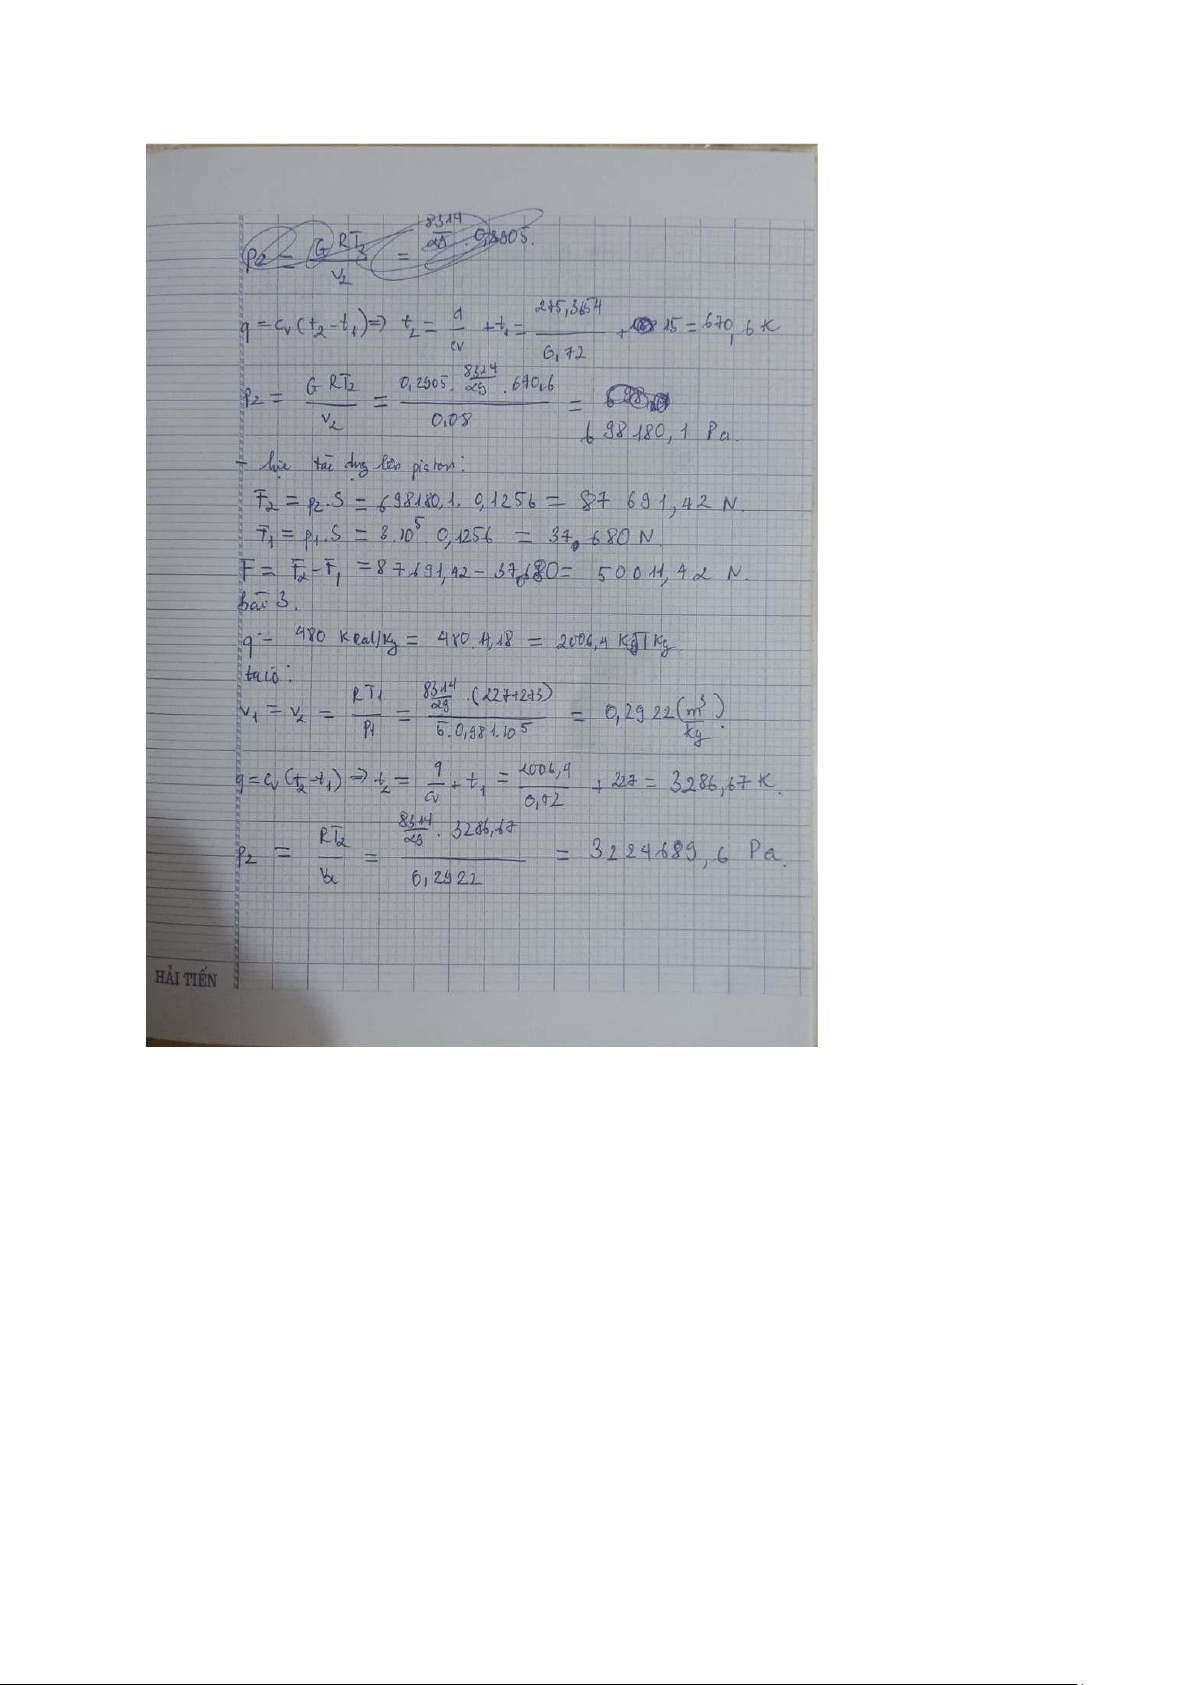 p₂ = G RT₂ / v₂ = 8314/29 . 0,2905.
q = cᵥ(t₂ - t₁) => t₂ = q/cv + t₁ = 275,3654 / 0,72 + 15 = 670,6 K
p₂ = G RT₂ / v₂ = 0,2905. 8314/29 . 670,6 / 0,08 = 698180,1 Pa.
- lực tác dụng lên piston:
F₂ = p₂.S = 698180,1. 0,1256 = 87 691,42 N.
F₁ = p₁.S = 3.10⁵ 0,1256 = 37 680 N.
F = F₂ - F₁ = 87691,42 - 37680 = 50011,42 N.
bài 3.
q = 480 Kcal/kg = 480.4,18 = 2006,4 KJ/Kg
ta có:
v₁ = v₂ = RT₁ / p₁ = 8314/29 . (227+273) / 5.0,981.10⁵ = 0,2922 (m³/kg).
q = cᵥ(t₂ - t₁) => t₂ = q/cv + t₁ = 2006,4 / 0,72 + 227 = 3286,67 K.
p₂ = RT₂ / v₂ = 8314/29 . 3286,67 / 0,2922 = 3224689,6 Pa.
HẢI TIẾN